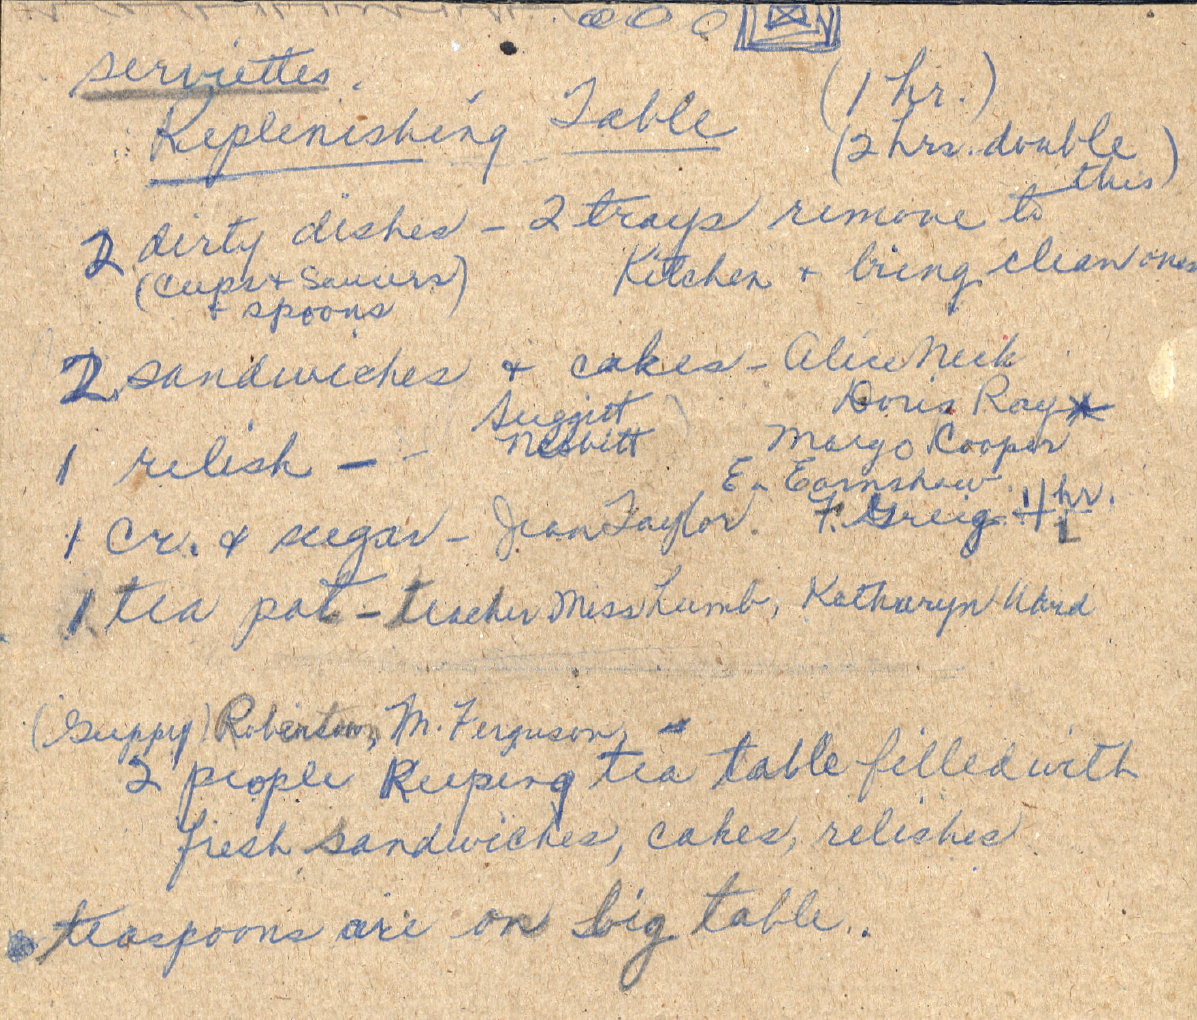 serviettes.
Replenishing Table (1 hr.)
(2 hrs. double this)
2 dirty dishes - 2 trays remove to
(cups & saucers) Kitchen + bring clean ones
+ spoons
2 sandwiches & cakes - Alice Neek
Suggitt Doris Ray *
1 relish - Nesbitt Margo Cooper
E. Earnshaw
1 Cr. & sugar - Jean Taylor. F. Greig hr.
1 tea pot - teacher Miss Lumb, Katharyn Ward
(Guppy) Robertson, M. Ferguson, -
2 people Keeping tea table filled with
fresh sandwiches, cakes, relishes
teaspoons are on big table..